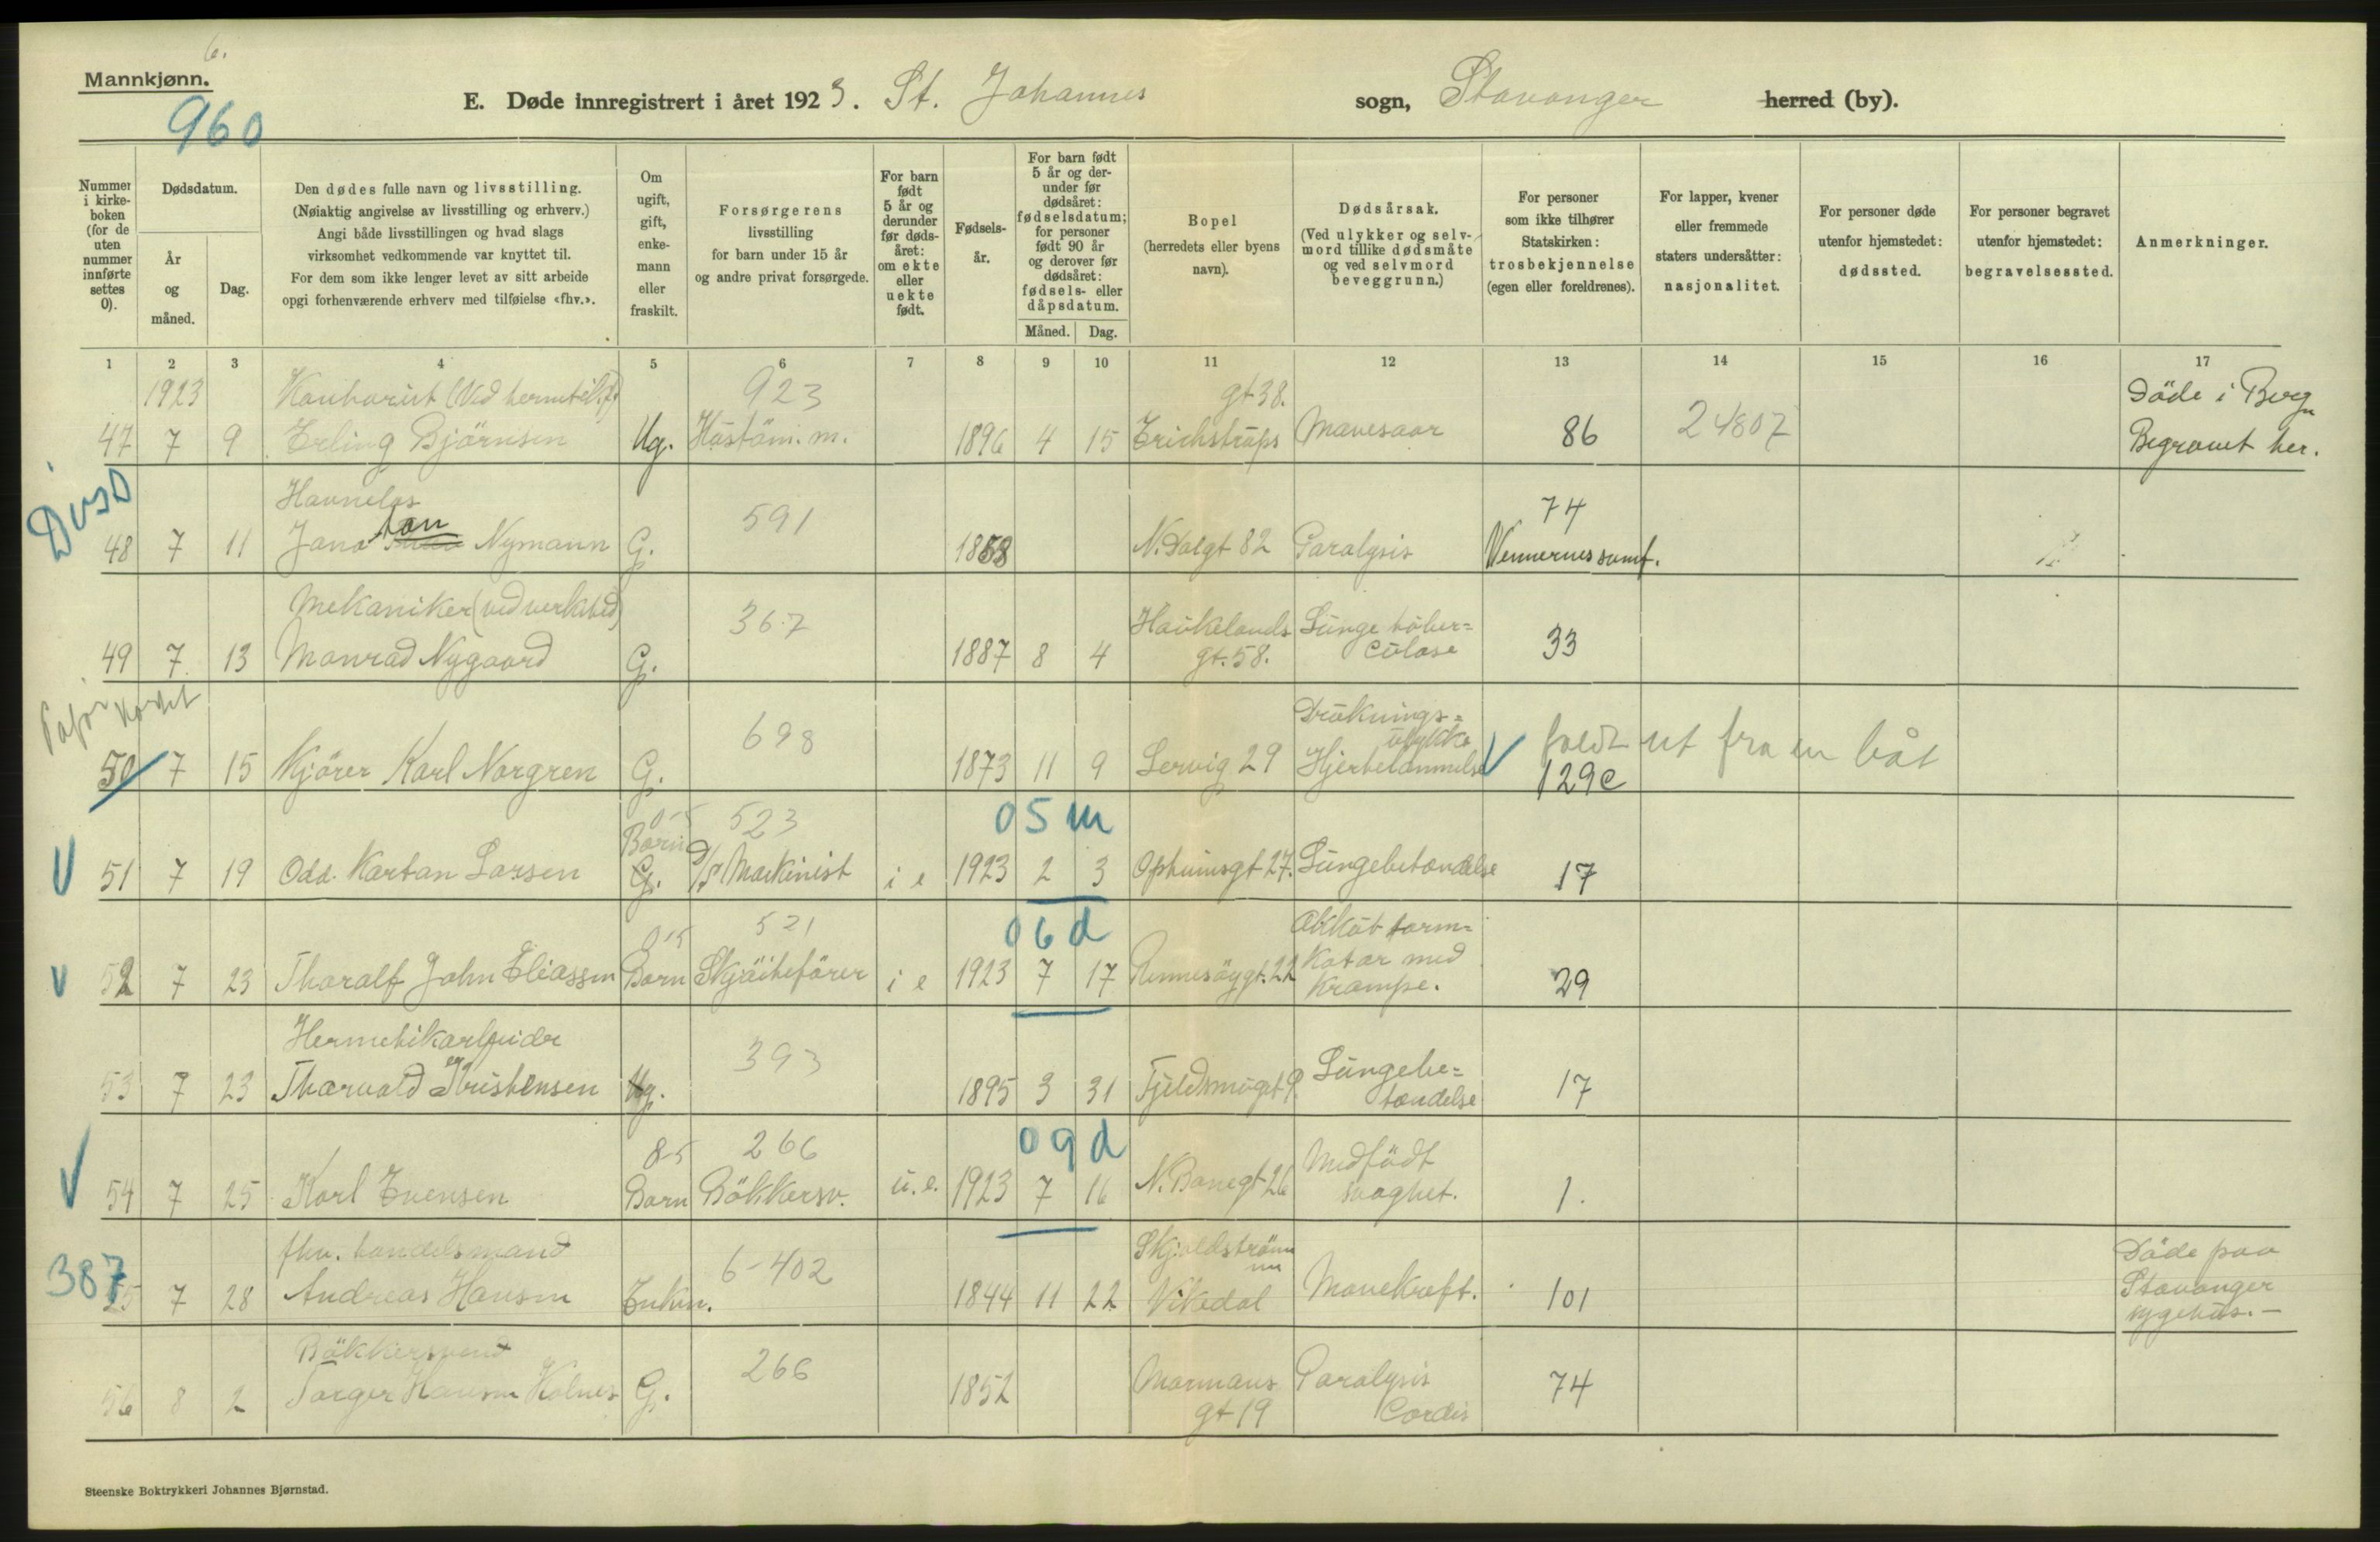 6.
Mannkjønn.
960
E. Døde innregistrert i året 1923. St. Johannes sogn, Stavanger herred (by).
Nummer i kirkeboken (for de uten nummer innførte settes 0).
Dødsdatum.
År og måned.
Dag.
Den dødes fulle navn og livsstilling.
(Nøiaktig angivelse av livsstilling og erhverv.)
Angi både livsstillingen og hvad slags
virksomhet vedkommende var knyttet til.
For dem som ikke lenger levet av sitt arbeide
opgi forhenværende erhverv med tilføielse «fhv.».
Om ugift, gift, enkemann eller fraskilt.
Forsørgerens
livsstilling
for barn under 15 år
og andre privat forsørgede.
For barn født 5 år og derunder før dødsåret: om ekte eller uekte født.
Fødselsår.
For barn født 5 år og derunder før dødsåret: fødselsdatum; for personer født 90 år og derover før dødsåret: fødsels- eller dåpsdatum.
Måned. Dag.
Bopel
(herredets eller byens navn).
Dødsårsak.
(Ved ulykker og selvmord tillike dødsmåte og ved selvmord beveggrunn.)
For personer
som ikke tilhører
Statskirken:
trosbekjennelse
(egen eller foreldrenes).
For lapper, kvener
eller fremmede
staters undersåtter:
nasjonalitet.
For personer døde
utenfor hjemstedet:
dødssted.
For personer begravet
utenfor hjemstedet:
begravelsessted.
Anmerkninger.
1 2 3 4 5 6 7 8 9 10 11 12 13 14 15 16 17
1923 923 gt 38. Döde i Berg
47 7 9 Erling Björnsen Ug. 1896 4 15 Erichstrups Mavesaar 86 24807 Begravet her.
Havnelos 591 74
48 7 11 Nymann G. 1858 N. Dalgt 82 Paralysis Vennernes samf.
Mekaniker (ved verksted) 367 Haukelands Lunge tuber=
49 7 13 Monrad Nygaard G. 1887 8 4 gt. 58. culose 33
698 Drüknings=
ulykke
50 7 15 Kjörer Karl Norgren G. 1873 11 9 Lervig 29 Hjertelammelse faldt ut fra en båt
129c
05m
Barn 523
51 7 19 Odd Kartan Larsen G. D/S Maskinist i e 1923 2 3 Opheimsgt 27. Lungebetændelse 17
06d
0-5 521 Akkut tarm=
52 7 23 Tharalf John Eliassen Barn Skjöitefører i e 1923 7 17 Rennesöygt. 22 Katar med
Krampe. 29
Hermetikarbeider 393 Lungebe=
53 7 23 Tharvald Kristensen Ug. 1895 3 31 tændelse 17
09d
266 Medfödt
54 7 25 Karl Evensen Barn Bökkersv. u. e. 1923 7 16 N. Banegt 26 svaghet. 1.
387
fhv. handelsmand 6-402 Döde paa
55 7 28 Andreas Hansen Enkm. 1844 11 22 Vikedal Mavekreft. 101 Stavanger
sygehus. —
Bökkersvend 266
56 8 2 Torger Hansen Kolnes G. 1852 Normans Paralysis 74
gt 19 Cordis
Steenske Boktrykkeri Johannes Bjørnstad.